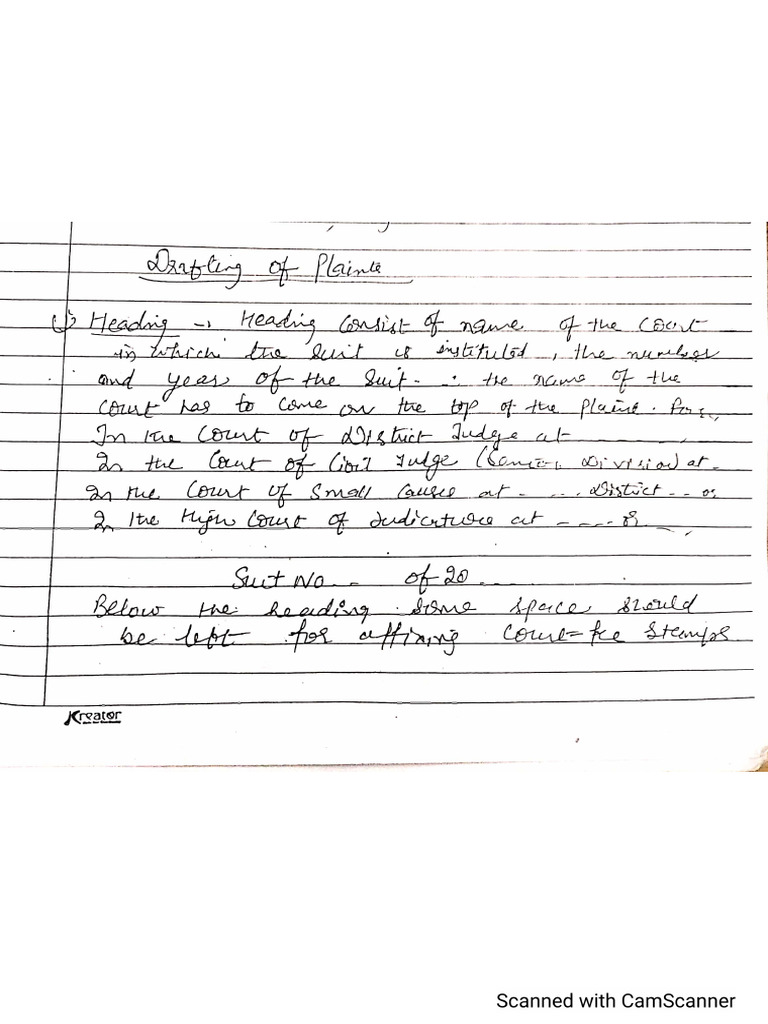 Drafting of Plaint
1) Heading → Heading consist of name of the court
in which the suit is instituted, the number
and year of the suit. ∴ the name of the
court has to come on the top of the Plaint. For
In the Court of District Judge at
In the Court of Civil Judge (Senior Division) at -
In the Court of Small Causes at - .... District .. or
In the High Court of Judicature at - ---- or
Suit No -- of 20 ....
Below the heading some space should
be left for affixing court-fee stamps
Kreator
Scanned with CamScanner